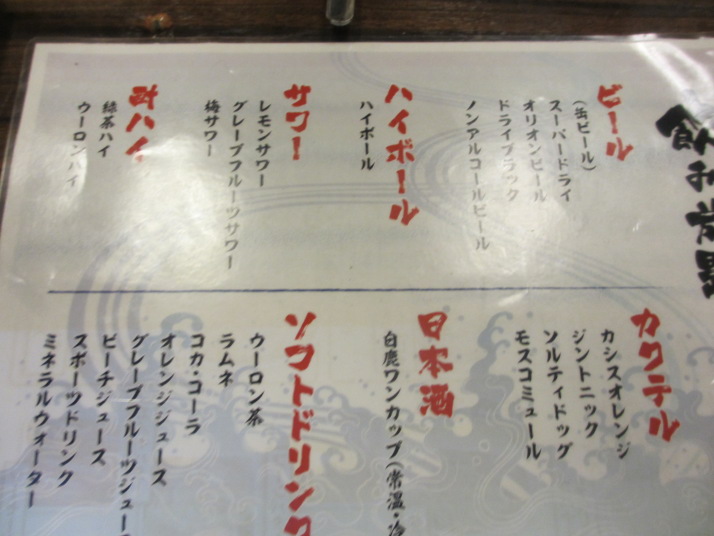 飲み放題
ビール
(缶ビール)
スーパードライ
オリオンビール
ドライブラック
ノンアルコールビール
ハイボール
ハイボール
サワー
レモンサワー
グレープフルーツサワー
梅サワー
酎ハイ
緑茶ハイ
ウーロンハイ
カクテル
カシスオレンジ
ジントニック
ソルティドッグ
モスコミュール
日本酒
白鹿ワンカップ(常温・冷
ソフトドリンク
ウーロン茶
ラムネ
コカ・コーラ
オレンジジュース
グレープフルーツジュース
ピーチジュース
スポーツドリンク
ミネラルウォーター